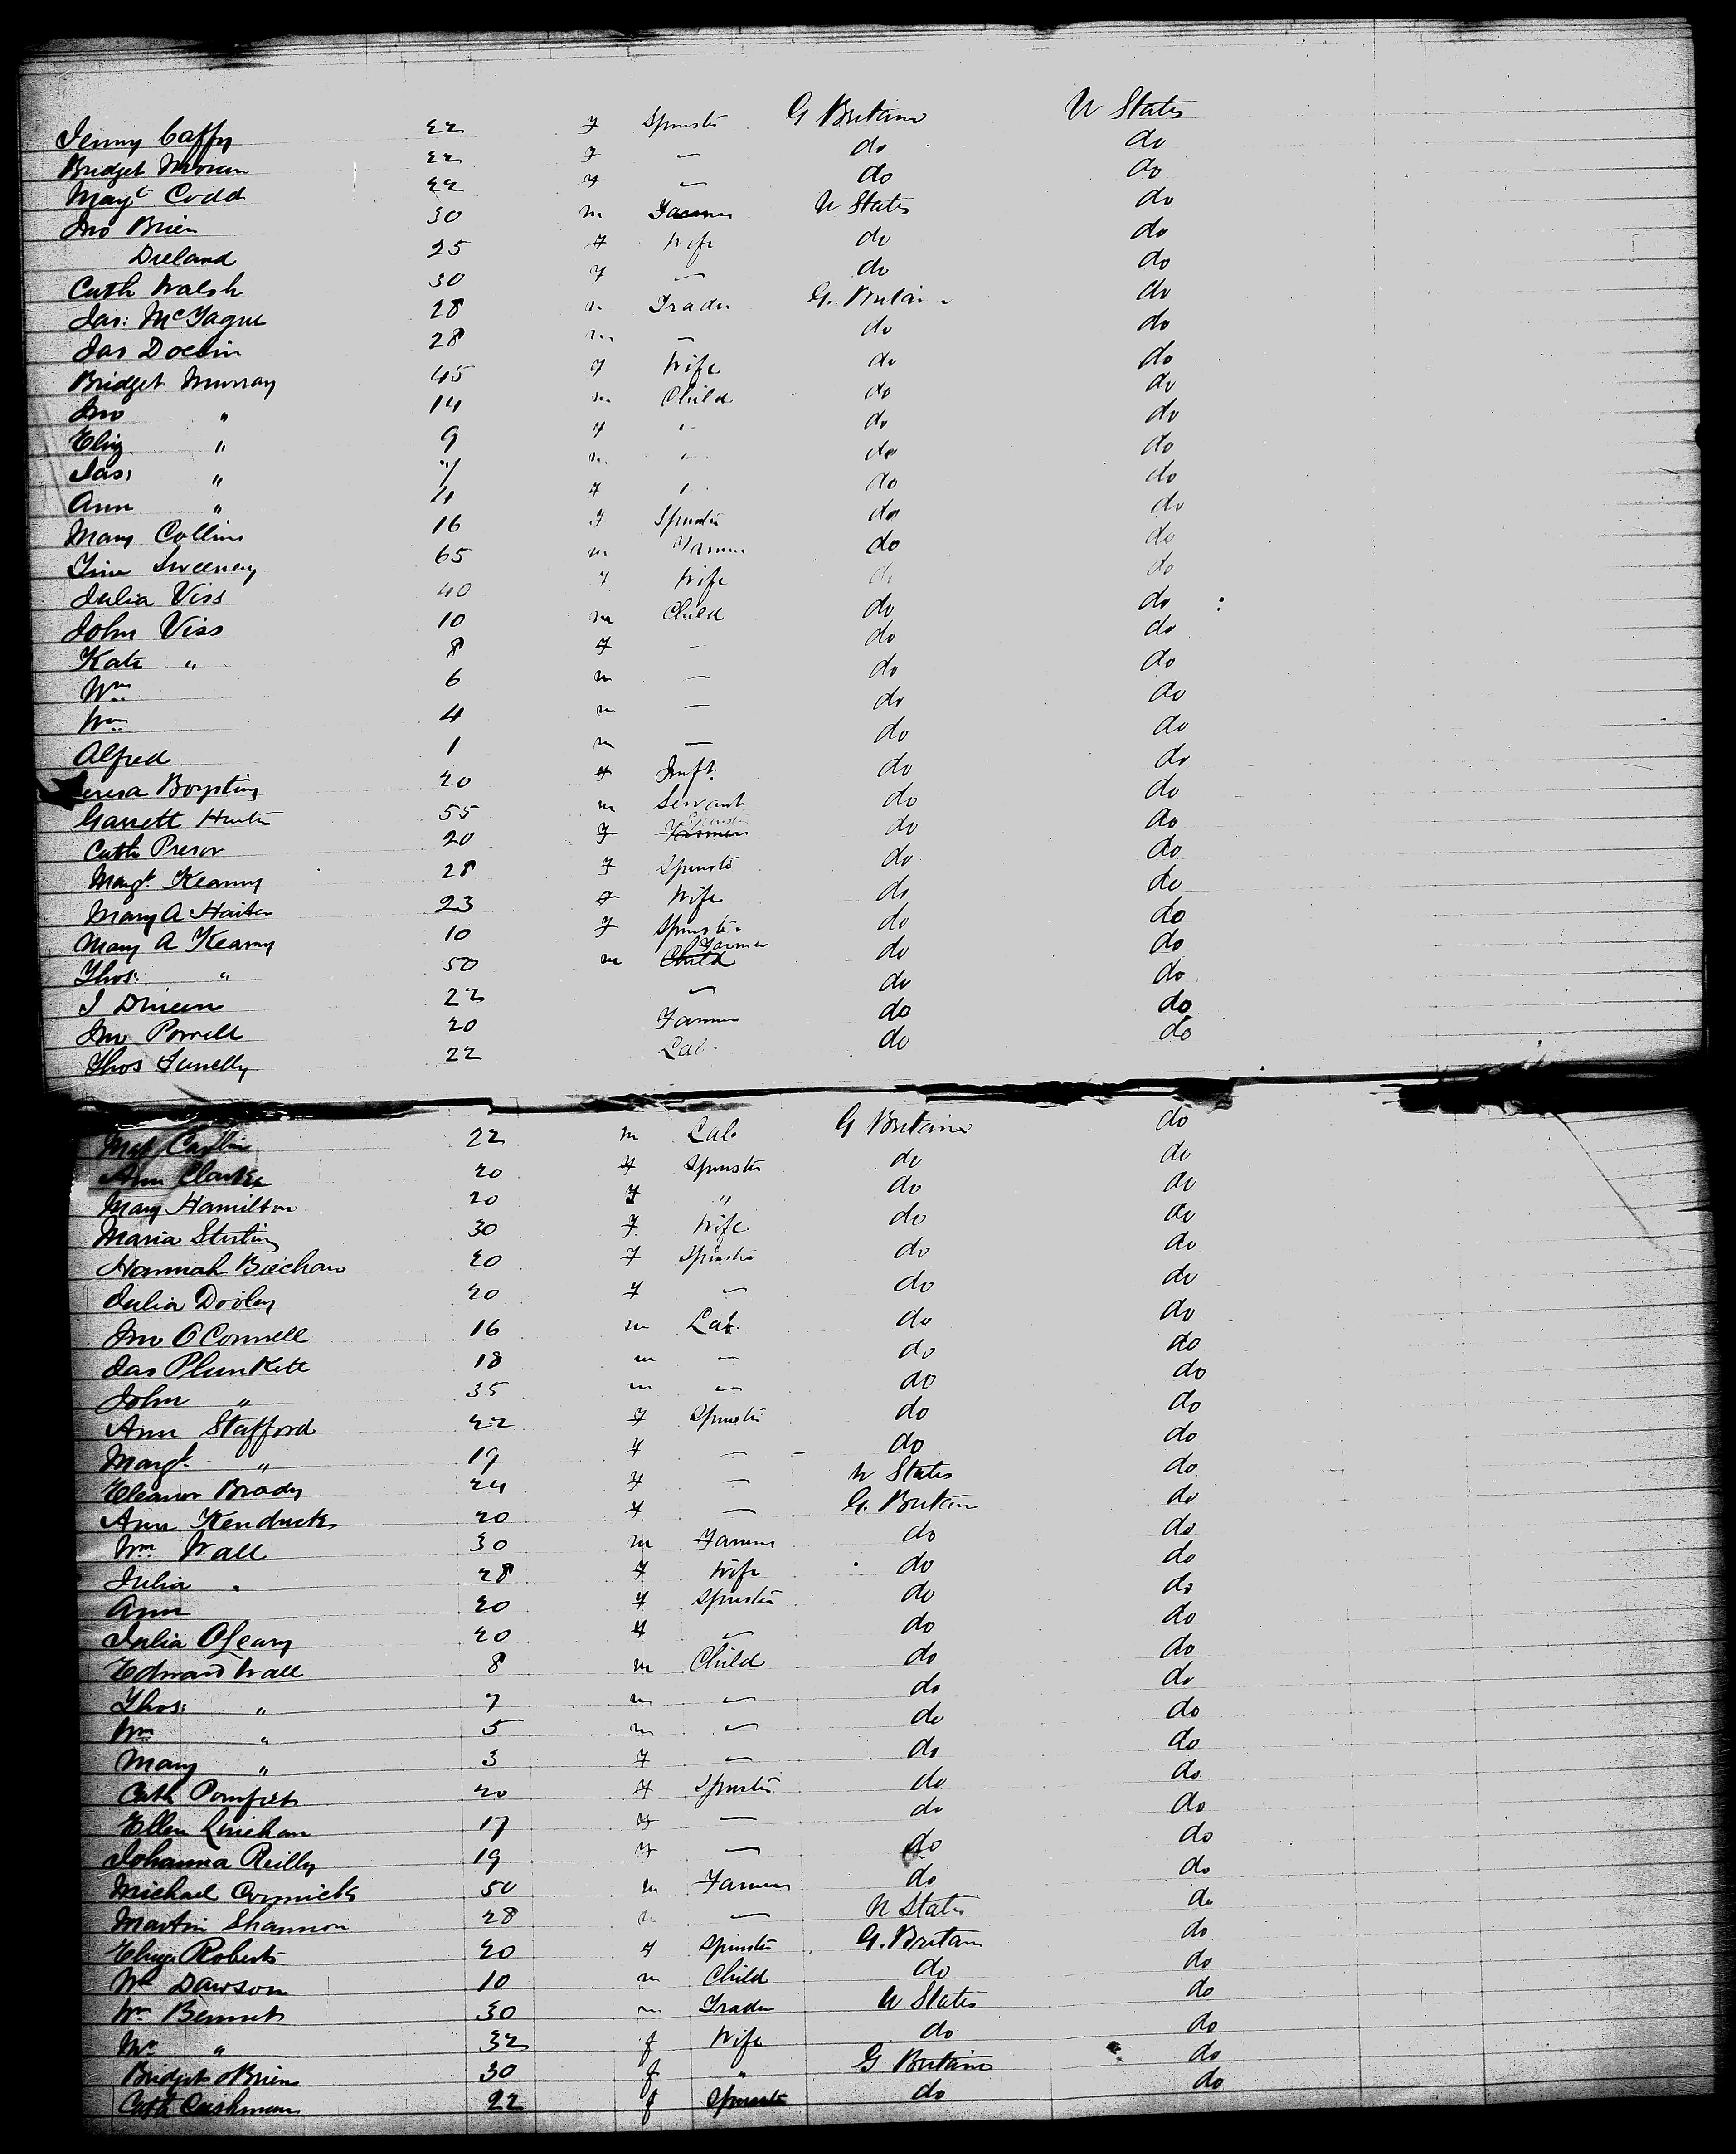 Jenny Caffy 22 f Spinster G Britain U States
Bridget Moran 22 f — do do
Magt Codd 22 f — do do
Jno Brien 30 m Farmer U States do
25 f Wife do do
Cath Walsh 30 f — do do
Jas: McTague 28 m Trader G. Britain do
Jas 28 m — do do
Bridget Murray 45 f Wife do do
Jno " 14 m Child do do
Eliz " 9 f " do do
Jas: " 7 m " do do
Ann " 4 f " do do
Mary Collins 16 f Spinster do do
Tim Sweeney 65 m Farmer do do
Julia Viss 40 f Wife do do
John Viss 10 m Child do do
Kate " 8 f — do do
Wm 6 m — do do
Wm 4 m — do do
Alfred 1 m — do do
20 f Inft. do do
Garrett Hunter 55 m Servant do do
Cath 20 f Spinster do do
Margt. Kearny 28 f Spinster do do
Mary A 23 f Wife do do
Mary A Kearny 10 f Spinster do do
Thos: " 50 m Child Farmer do do
J 22 — do do
Jno Powell 20 Farmer do do
Thos 22 Lab. do do
22 m Lab. G Britain do
Ann Clarke 20 f Spinster do do
Mary Hamilton 20 f " do do
Maria Sterling 30 f Wife do do
Hannah 20 f Spinster do do
Julia Dooley 20 f — do do
Jno O'Connell 16 m Lab. do do
Jas Plunkett 18 m — do do
John " 35 m — do do
Ann Stafford 22 f Spinster do do
Margt. " 19 f — do do
Eleanor Brady 24 f — U States do
Ann Kendrick 20 f — G. Britain do
Wm Wall 30 m Farmer do do
Julia " 28 f Wife do do
Ann 20 f Spinster do do
Julia OLeary 20 f — do do
Edward Wall 8 m Child do do
Thos: " 7 m — do do
Wm " 5 m — do do
Mary " 3 f — do do
Cath Pomfret 20 f Spinster do do
Ellen Linehan 17 f — do do
Johanna Reilly 19 f — do do
Michael Cormick 50 m Farmer do do
Martin Shannon 28 m — U States do
Eliza Roberts 20 f Spinster G. Britain do
Wm Dawson 10 m Child do do
Wm Bennet 30 m Trader U States do
Mrs " 32 f Wife do do
Bridget OBrien 30 f " G Britain do
Cath Cushman 22 f Spinster do do